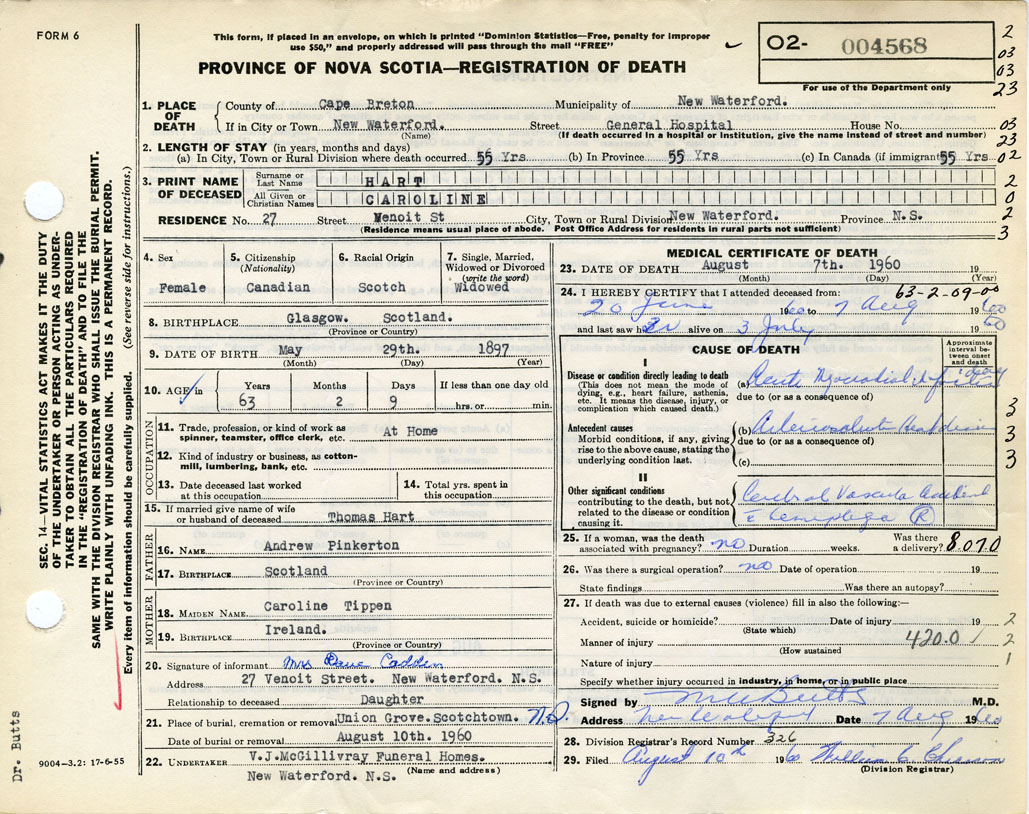 FORM 6
This form, if placed in an envelope, on which is printed "Dominion Statistics—Free, penalty for improper
use $50," and properly addressed will pass through the mail "FREE"
PROVINCE OF NOVA SCOTIA—REGISTRATION OF DEATH
O2- 004568
For use of the Department only
2
03
03
23
1. PLACE OF DEATH
County of Cape Breton Municipality of New Waterford.
If in City or Town New Waterford. Street General Hospital House No. 03
(Name) (If death occurred in a hospital or institution, give the name instead of street and number) 23
2. LENGTH OF STAY (in years, months and days)
(a) In City, Town or Rural Division where death occurred 55 Yrs (b) In Province 55 Yrs (c) In Canada (if immigrant) 55 Yrs 02
3. PRINT NAME OF DECEASED
Surname or Last Name HART 2
All Given or Christian Names CAROLINE 0
RESIDENCE No. 27 Street Menoit St City, Town or Rural Division New Waterford. Province N.S. 2
(Residence means usual place of abode. Post Office Address for residents in rural parts not sufficient) 3
4. Sex
Female
5. Citizenship
(Nationality)
Canadian
6. Racial Origin
Scotch
7. Single, Married, Widowed or Divorced
(write the word)
Widowed
8. BIRTHPLACE Glasgow. Scotland.
(Province or Country)
9. DATE OF BIRTH May 29th. 1897
(Month) (Day) (Year)
10. AGE in
Years Months Days If less than one day old
63 2 9 hrs. or min.
OCCUPATION
11. Trade, profession, or kind of work as
spinner, teamster, office clerk, etc. At Home
12. Kind of industry or business, as cotton-
mill, lumbering, bank, etc.
13. Date deceased last worked
at this occupation
14. Total yrs. spent in
this occupation
15. If married give name of wife
or husband of deceased Thomas Hart
FATHER
16. NAME Andrew Pinkerton
17. BIRTHPLACE Scotland
(Province or Country)
MOTHER
18. MAIDEN NAME Caroline Tippen
19. BIRTHPLACE Ireland.
(Province or Country)
20. Signature of informant Mrs Cadden
Address 27 Venoit Street. New Waterford. N.S.
Relationship to deceased Daughter
21. Place of burial, cremation or removal Union Grove.Scotchtown. N.S.
Date of burial or removal August 10th. 1960
22. UNDERTAKER V.J.McGillivray Funeral Homes.
New Waterford. N.S. (Name and address)
MEDICAL CERTIFICATE OF DEATH
23. DATE OF DEATH August 7th. 1960
(Month) (Day) (Year)
24. I HEREBY CERTIFY that I attended deceased from: 63-2-09-00
20 June 1960 to 7 Aug 1960
and last saw her alive on 3 July 1960
CAUSE OF DEATH
Approximate interval between onset and death
I
Disease or condition directly leading to death
(This does not mean the mode of
dying, e.g., heart failure, asthenia,
etc. It means the disease, injury, or
complication which caused death.)
(a) Acute Myocardial Infarction 1 day
due to (or as a consequence of)
3
Antecedent causes
Morbid conditions, if any, giving
rise to the above cause, stating the
underlying condition last.
(b) Heart disease
due to (or as a consequence of)
(c)
3
3
3
II
Other significant conditions
contributing to the death, but not
related to the disease or condition
causing it.
Cerebral Vascular Accident
c Hemiplegia (R)
25. If a woman, was the death
associated with pregnancy? no Duration weeks. Was there
a delivery? 8.07.0
26. Was there a surgical operation? no Date of operation 19
State findings Was there an autopsy?
27. If death was due to external causes (violence) fill in also the following:—
Accident, suicide or homicide? Date of injury 19 2
(State which)
Manner of injury 420.0 / 2
(How sustained)
Nature of injury 1
Specify whether injury occurred in industry, in home, or in public place
Signed by M U Butts M.D.
Address New Waterford Date 7 Aug 1960
28. Division Registrar's Record Number 326
29. Filed August 10th 196 William C Chiasson
(Division Registrar)
SEC. 14—VITAL STATISTICS ACT MAKES IT THE DUTY
OF THE UNDERTAKER OR PERSON ACTING AS UNDER-
TAKER TO OBTAIN ALL THE PARTICULARS REQUIRED
IN THE "REGISTRATION OF DEATH" AND TO FILE THE
SAME WITH THE DIVISION REGISTRAR WHO SHALL ISSUE THE BURIAL PERMIT.
WRITE PLAINLY WITH UNFADING INK. THIS IS A PERMANENT RECORD.
Every item of information should be carefully supplied. (See reverse side for instructions.)
Dr. Butts
9004-3.2: 17-6-55